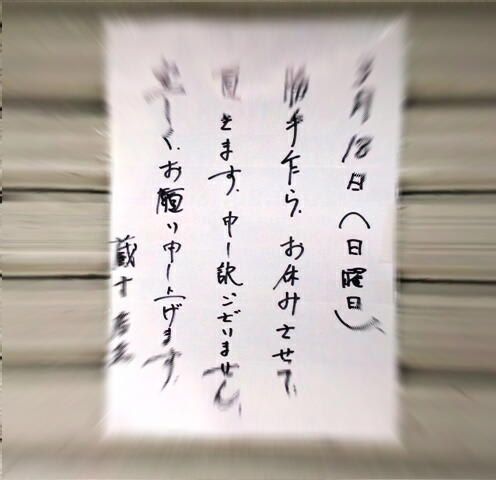 3月18日(日曜日)
勝手乍ら、お休みさせて
頂きます。申し訳ございません。
宜しく、お願い申し上げます。
蔵十